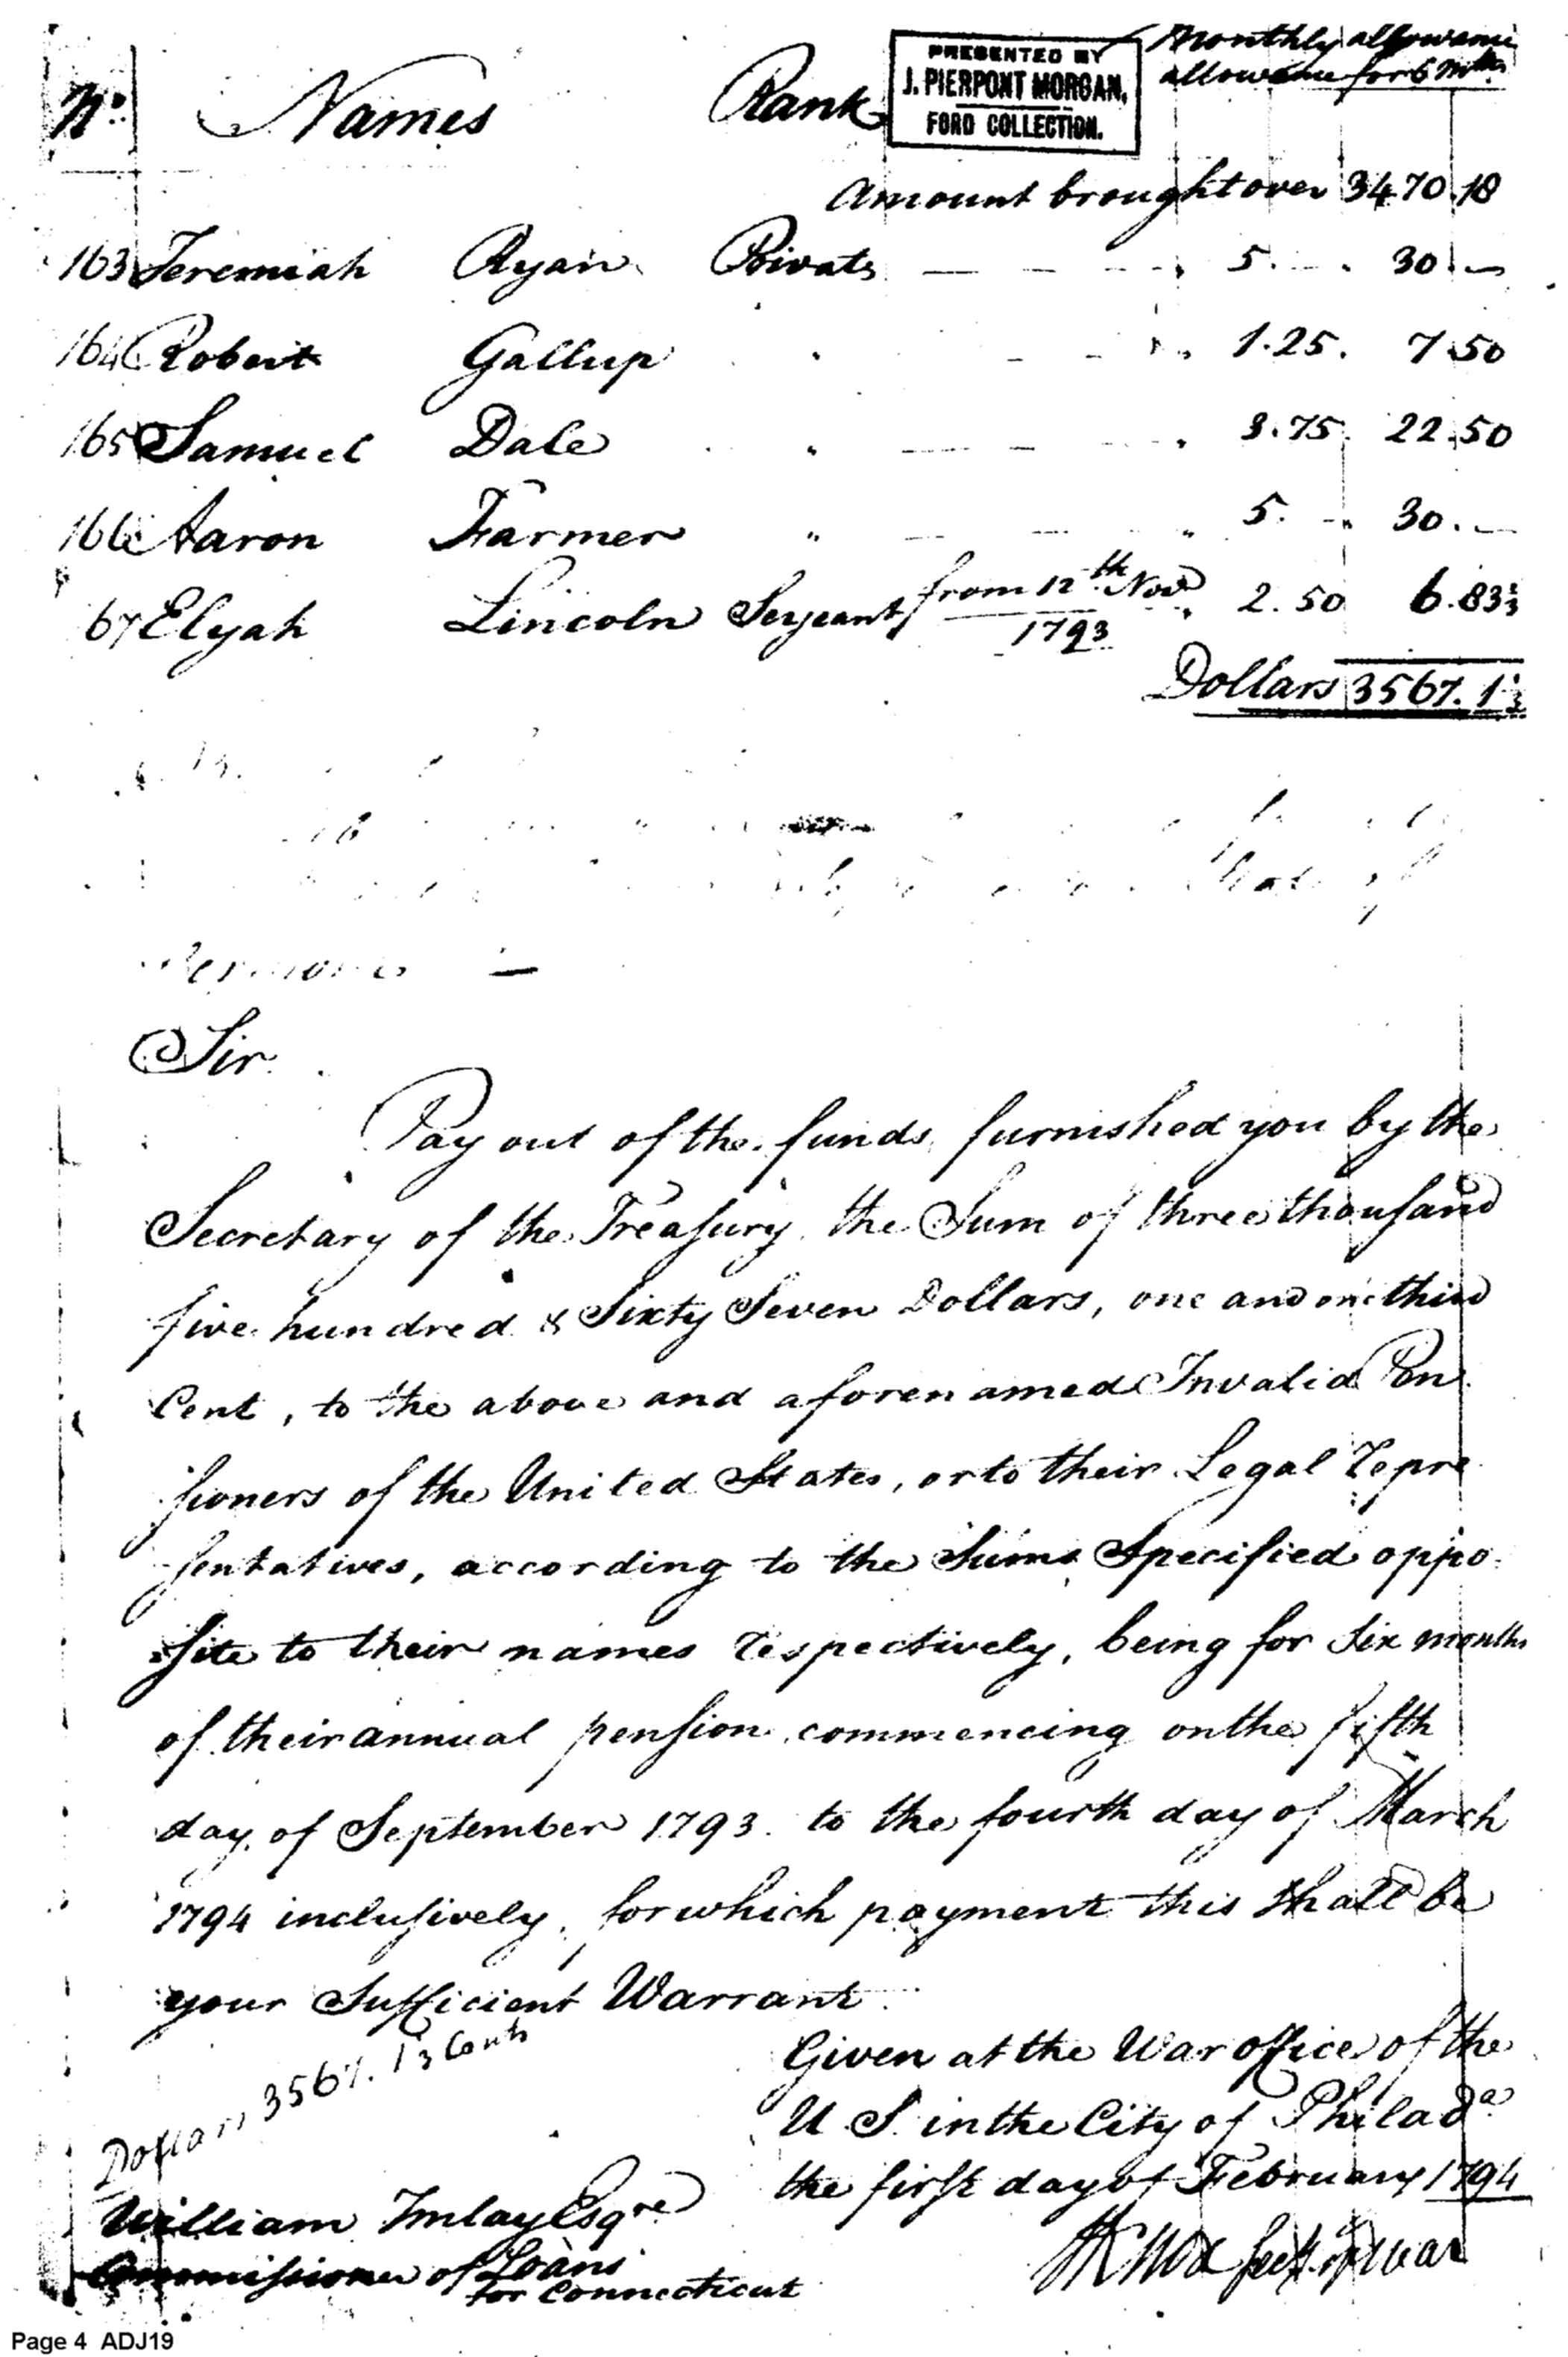 No. Names Rank Monthly allowance
allowance for 6 Mths
PRESENTED BY
J. PIERPONT MORGAN,
FORD COLLECTION.
Amount brought over 3470.18
163 Jeremiah Ryan Private 5. 30.—
164 Robert Gallup " 1.25. 7.50
165 Samuel Dale " 3.75. 22.50
166 Aaron Farmer " 5. 30.—
67 Elijah Lincoln Serjeant, from 12th Nov 1793 2.50 6.83⅓
Dollars 3567.1⅓
Sir.
Pay out of the funds furnished you by the
Secretary of the Treasury the Sum of three thousand
five hundred & Sixty Seven Dollars, one and one third
Cent, to the above and aforenamed Invalid Pen
sioners of the United States, or to their Legal repre
sentatives, according to the Sums Specified oppo
site to their names respectively, being for Six months
of their annual pension commencing on the fifth
day of September 1793. to the fourth day of March
1794 inclusively, for which payment this shall be
your Sufficient Warrant.
Given at the War office of the
U S. in the City of Philada
the first day of February 1794
Dollars 3567. 1⅓ Cents
William Imlay Esqre
Commissioner of Loans
for Connecticut
HKnox Secy. of War
Page 4 ADJ19